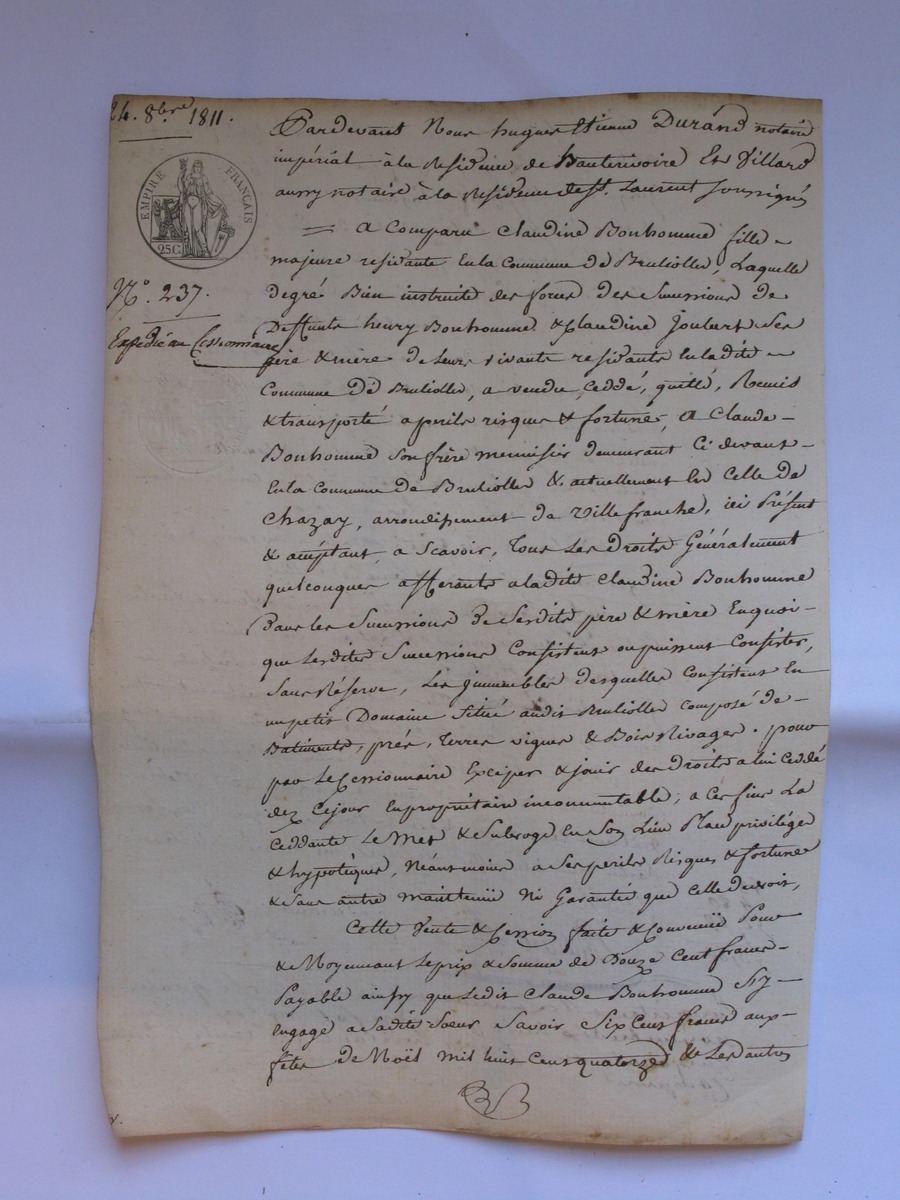 24. 8bre 1811.
EMPIRE FRANÇAIS
25 C.
N.° 237.
Expédié au Cessionnaire
Pardevant Nous hugues Etienne Durand notaire
impérial à la Residence de hauterivoire Et Villard
aussy notaire à la Residence de St. Laurent soussignés
= A Comparu Claudine Bonhomme fille
majeure residante En la Commune de Brulioller, Laquelle
de gré Bien instruite des forces des Successions de
Deffunts henry Bonhomme & Claudine Joubert Ses
père & mère de Leurs vivants residants En la dite
Commune De Brulioller, a vendu, Ceddé, quitté, Remis
& transporté a perils risques & fortune, A Claude
Bonhomme Son frère menuisier demeurant Ci devant
En la Commune de Brulioller & actuellement En Celle de
Chazay, arrondissement de Villefranche, ici Présent
& acceptant, a Scavoir, Tous Les droits Généralement
quelconques afferants a la dite Claudine Bonhomme
Dans les Successions De Sesdits père & mère En quoi
que Lesdites Successions Consistent ou puissent Consister,
Sans Réserve, Les jmmeubles desquelles Consistent En
un petit Domaine Situé audit Brulioller Composé de
Batiments, prés, Terres vignes & Bois Rivages. pour
par Le Cessionnaire Exciper & jouir des Droits a lui Ceddé
dez Cejour En propriétaire incommutable; a Ces fins La
Ceddante Le Met & Subroge En Son Lieu Place privilége
& hypotèques, Néantmoins a Ses perils Risques & fortune
& Sans autre maintenüe Ni Garantie que Celle de droit,
Cette Vente & Cession faite & Convenüe Pour
& Moyennant Le prix & Somme de Douze Cent francs
Payable ainsy que Ledit Claude Bonhomme S'y
engage a Sadite Soeur Savoir Six Cent francs aux
fêtes de Noël mil huit Cent quatorze & Les autres